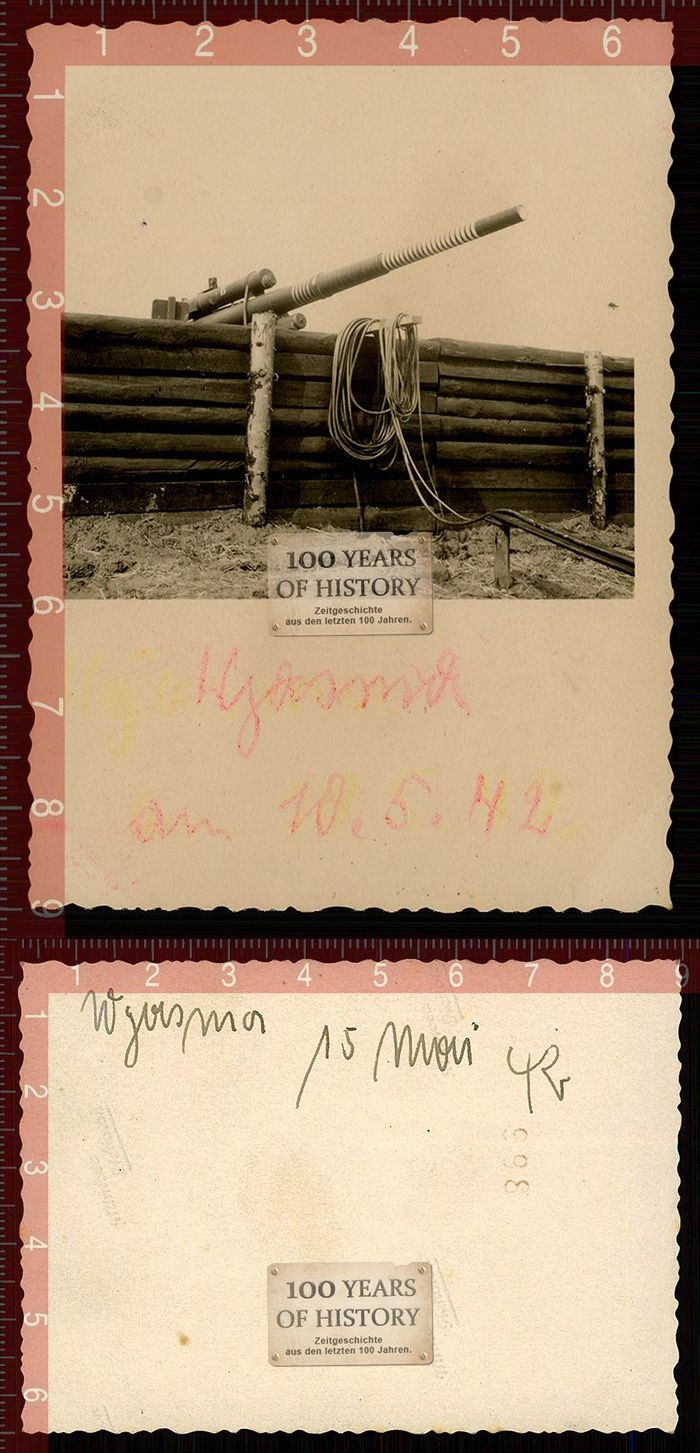 1 2 3 4 5 6
1
2
3
4
5
6
7
8
9
100 YEARS
OF HISTORY
Zeitgeschichte
aus den letzten 100 Jahren.
Wjasma
am 10.5.42.
1 2 3 4 5 6 7 8 9
1
2
3
4
5
6
Wyasma 15 Mai 42
866
100 YEARS
OF HISTORY
Zeitgeschichte
aus den letzten 100 Jahren.